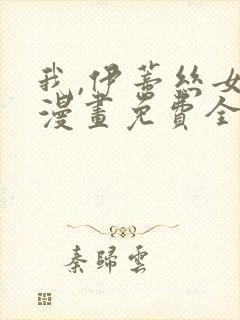 我,伊蒂絲女
漫畫免費全
秦歸雲